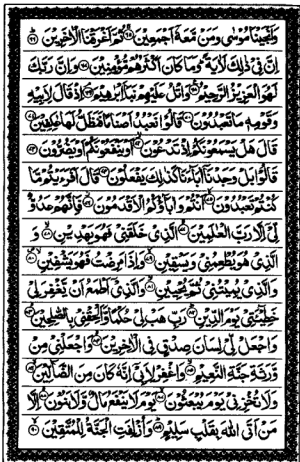 وَاَنْجَيْنَا مُوْسٰى وَمَنْ مَّعَهٗۤ اَجْمَعِيْنَ ۶۵ ثُمَّ اَغْرَقْنَا الْاٰخَرِيْنَ ۶۶
اِنَّ فِيْ ذٰلِكَ لَاٰيَةً وَمَا كَانَ اَكْثَرُهُمْ مُّؤْمِنِيْنَ ۶۷ وَاِنَّ رَبَّكَ
لَهُوَ الْعَزِيْزُ الرَّحِيْمُ ۶۸ وَاتْلُ عَلَيْهِمْ نَبَاَ اِبْرٰهِيْمَ ۶۹ اِذْ قَالَ لِاَبِيْهِ
وَقَوْمِهٖ مَا تَعْبُدُوْنَ ۷۰ قَالُوْا نَعْبُدُ اَصْنَامًا فَنَظَلُّ لَهَا عٰكِفِيْنَ ۷۱
قَالَ هَلْ يَسْمَعُوْنَكُمْ اِذْ تَدْعُوْنَ ۷۲ اَوْ يَنْفَعُوْنَكُمْ اَوْ يَضُرُّوْنَ ۷۳
قَالُوْا بَلْ وَجَدْنَاۤ اٰبَآءَنَا كَذٰلِكَ يَفْعَلُوْنَ ۷۴ قَالَ اَفَرَءَيْتُمْ مَّا
كُنْتُمْ تَعْبُدُوْنَ ۷۵ اَنْتُمْ وَاٰبَآؤُكُمُ الْاَقْدَمُوْنَ ۷۶ فَاِنَّهُمْ عَدُوٌّ
لِّيْۤ اِلَّا رَبَّ الْعٰلَمِيْنَ ۷۷ الَّذِيْ خَلَقَنِيْ فَهُوَ يَهْدِيْنِ ۷۸ وَ
الَّذِيْ هُوَ يُطْعِمُنِيْ وَيَسْقِيْنِ ۷۹ وَاِذَا مَرِضْتُ فَهُوَ يَشْفِيْنِ ۸۰
وَالَّذِيْ يُمِيْتُنِيْ ثُمَّ يُحْيِيْنِ ۸۱ وَالَّذِيْۤ اَطْمَعُ اَنْ يَّغْفِرَ لِيْ
خَطِيْٓئَتِيْ يَوْمَ الدِّيْنِ ۸۲ رَبِّ هَبْ لِيْ حُكْمًا وَّاَلْحِقْنِيْ بِالصّٰلِحِيْنَ ۸۳
وَاجْعَلْ لِّيْ لِسَانَ صِدْقٍ فِي الْاٰخِرِيْنَ ۸۴ وَاجْعَلْنِيْ مِنْ
وَّرَثَةِ جَنَّةِ النَّعِيْمِ ۸۵ وَاغْفِرْ لِاَبِيْۤ اِنَّهٗ كَانَ مِنَ الضَّآلِّيْنَ ۸۶
وَلَا تُخْزِنِيْ يَوْمَ يُبْعَثُوْنَ ۸۷ يَوْمَ لَا يَنْفَعُ مَالٌ وَّلَا بَنُوْنَ ۸۸ اِلَّا
مَنْ اَتَى اللّٰهَ بِقَلْبٍ سَلِيْمٍ ۸۹ وَاُزْلِفَتِ الْجَنَّةُ لِلْمُتَّقِيْنَ ۹۰